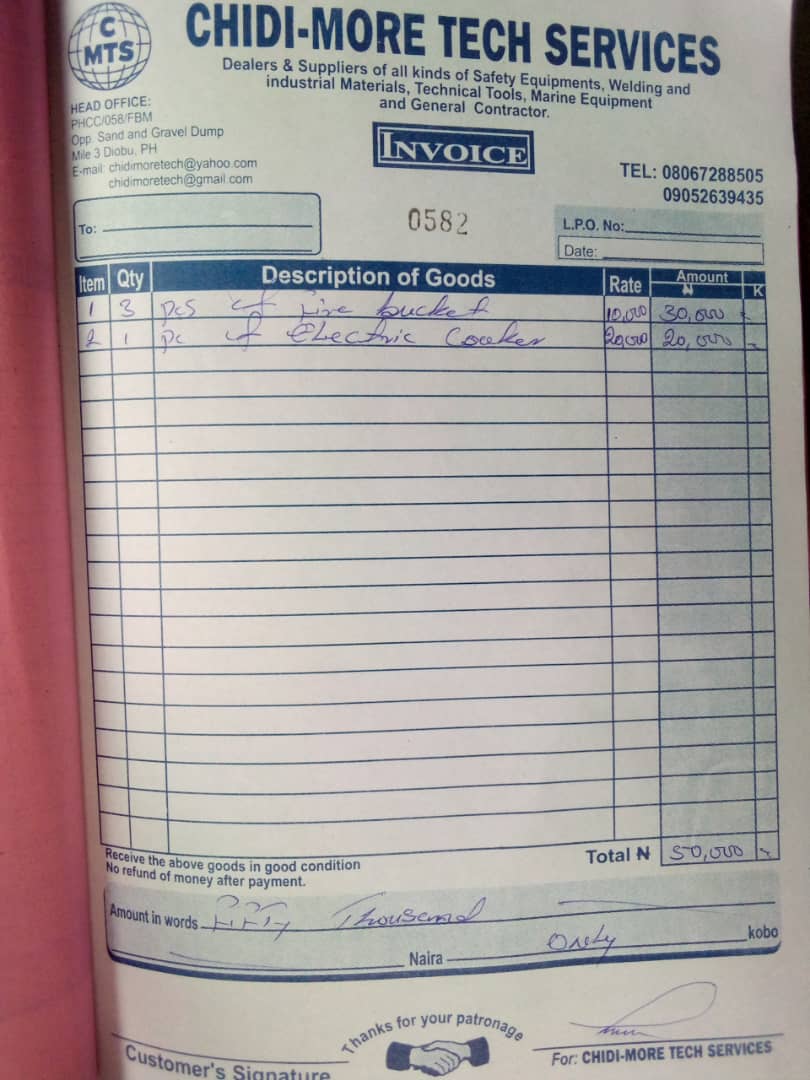 C
MTS
CHIDI-MORE TECH SERVICES
Dealers & Suppliers of all kinds of Safety Equipments, Welding and
industrial Materials, Technical Tools, Marine Equipment
and General Contractor.
HEAD OFFICE:
PHCC/058/FBM
Opp. Sand and Gravel Dump
Mile 3 Diobu, PH
E-mail: chidimoretech@yahoo.com
chidimoretech@gmail.com
INVOICE
TEL: 08067288505
09052639435
To:
0582
L.P.O. No:
Date:
Item Qty Description of Goods Rate Amount
₦ K
1 3 pcs of Fire bucket 10,000 30,000 -
2 1 pc of Electric Cooker 20,000 20,000 -
Receive the above goods in good condition
No refund of money after payment.
Total ₦ 50,000 -
Amount in words Fifty Thousand
Naira Only kobo
Thanks for your patronage
Customer's Signature
For: CHIDI-MORE TECH SERVICES